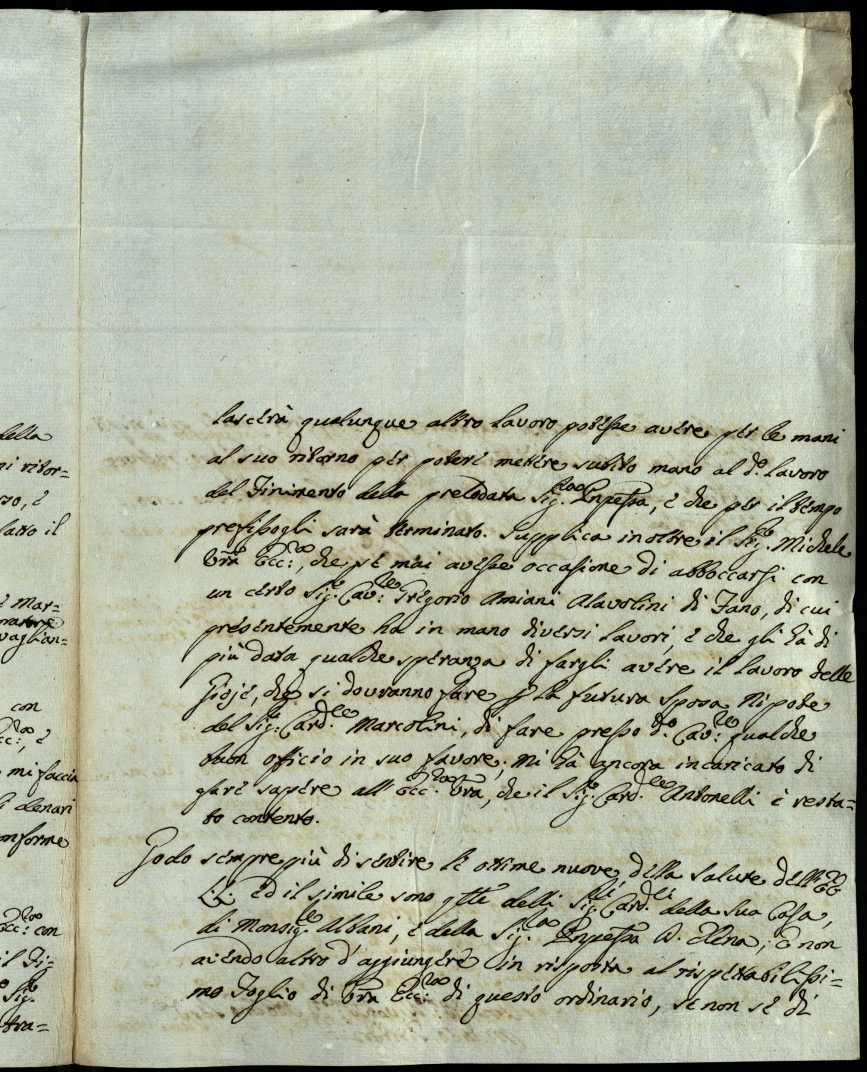 della
ni ritor=
rso, è
latto il
è Mar=
vaglian=
con
Ecc:, è
mi faccia
li denari
onforme
Ecc: con
il Fi=
Sig.
stra=
lascerà qualunque altro lavoro potesse avere per le mani
al suo ritorno per poteré metere subito mano al do. lavoro
del Finimento della prelodata Sig.ra Pnpessa, è che per il tempo
prefissogli sarà terminato. Supplica inoltre il Sig.e Michele
Vra Ecc:za, che se mai avesse occasione di abboccarsi con
un certo Sig.e Cav:re Gregorio Amiani Alavolini di Fano, di cui
presentemente ha in mano diversi lavori, è che gli hà di
più data qualche speranza di fargli avere il lavoro delle
Gioje, che si dovranno fare p la futura Sposa Nipote
del Sig:e Card.le Marcolini, di fare presso do. Cav:re qualche
buon officio in suo favore, mi hà ancora incaricato di
farè sapére all'Ecc:za Vra, che il Sig.e Card.le Antonelli è resta=
to contento.
Godo sempre più di sentire le ottime nuove della salute dell'EE
L:L: ed il simile sono qtte delli Sig.ri Card.li della sua Casa,
di Monsig.re Albani, è della Sig.ra Pnpessa D. Elena; è non
avendo altro d'aggiungére in risposta al rispetabilissi=
mo Foglio di Vra Ecc:za di questo ordinario, se non se di